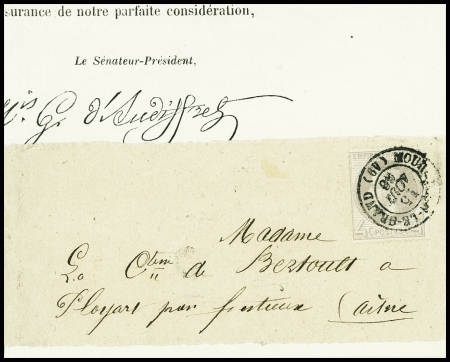 surance de notre parfaite considération,
Le Sénateur-Président,
is G. d'Audiffret
EMP
MOUR LE-GRAND (60)
15
AOUT
Madame
La Ctesse de Bertoult a
Ployart par festieux (aisne